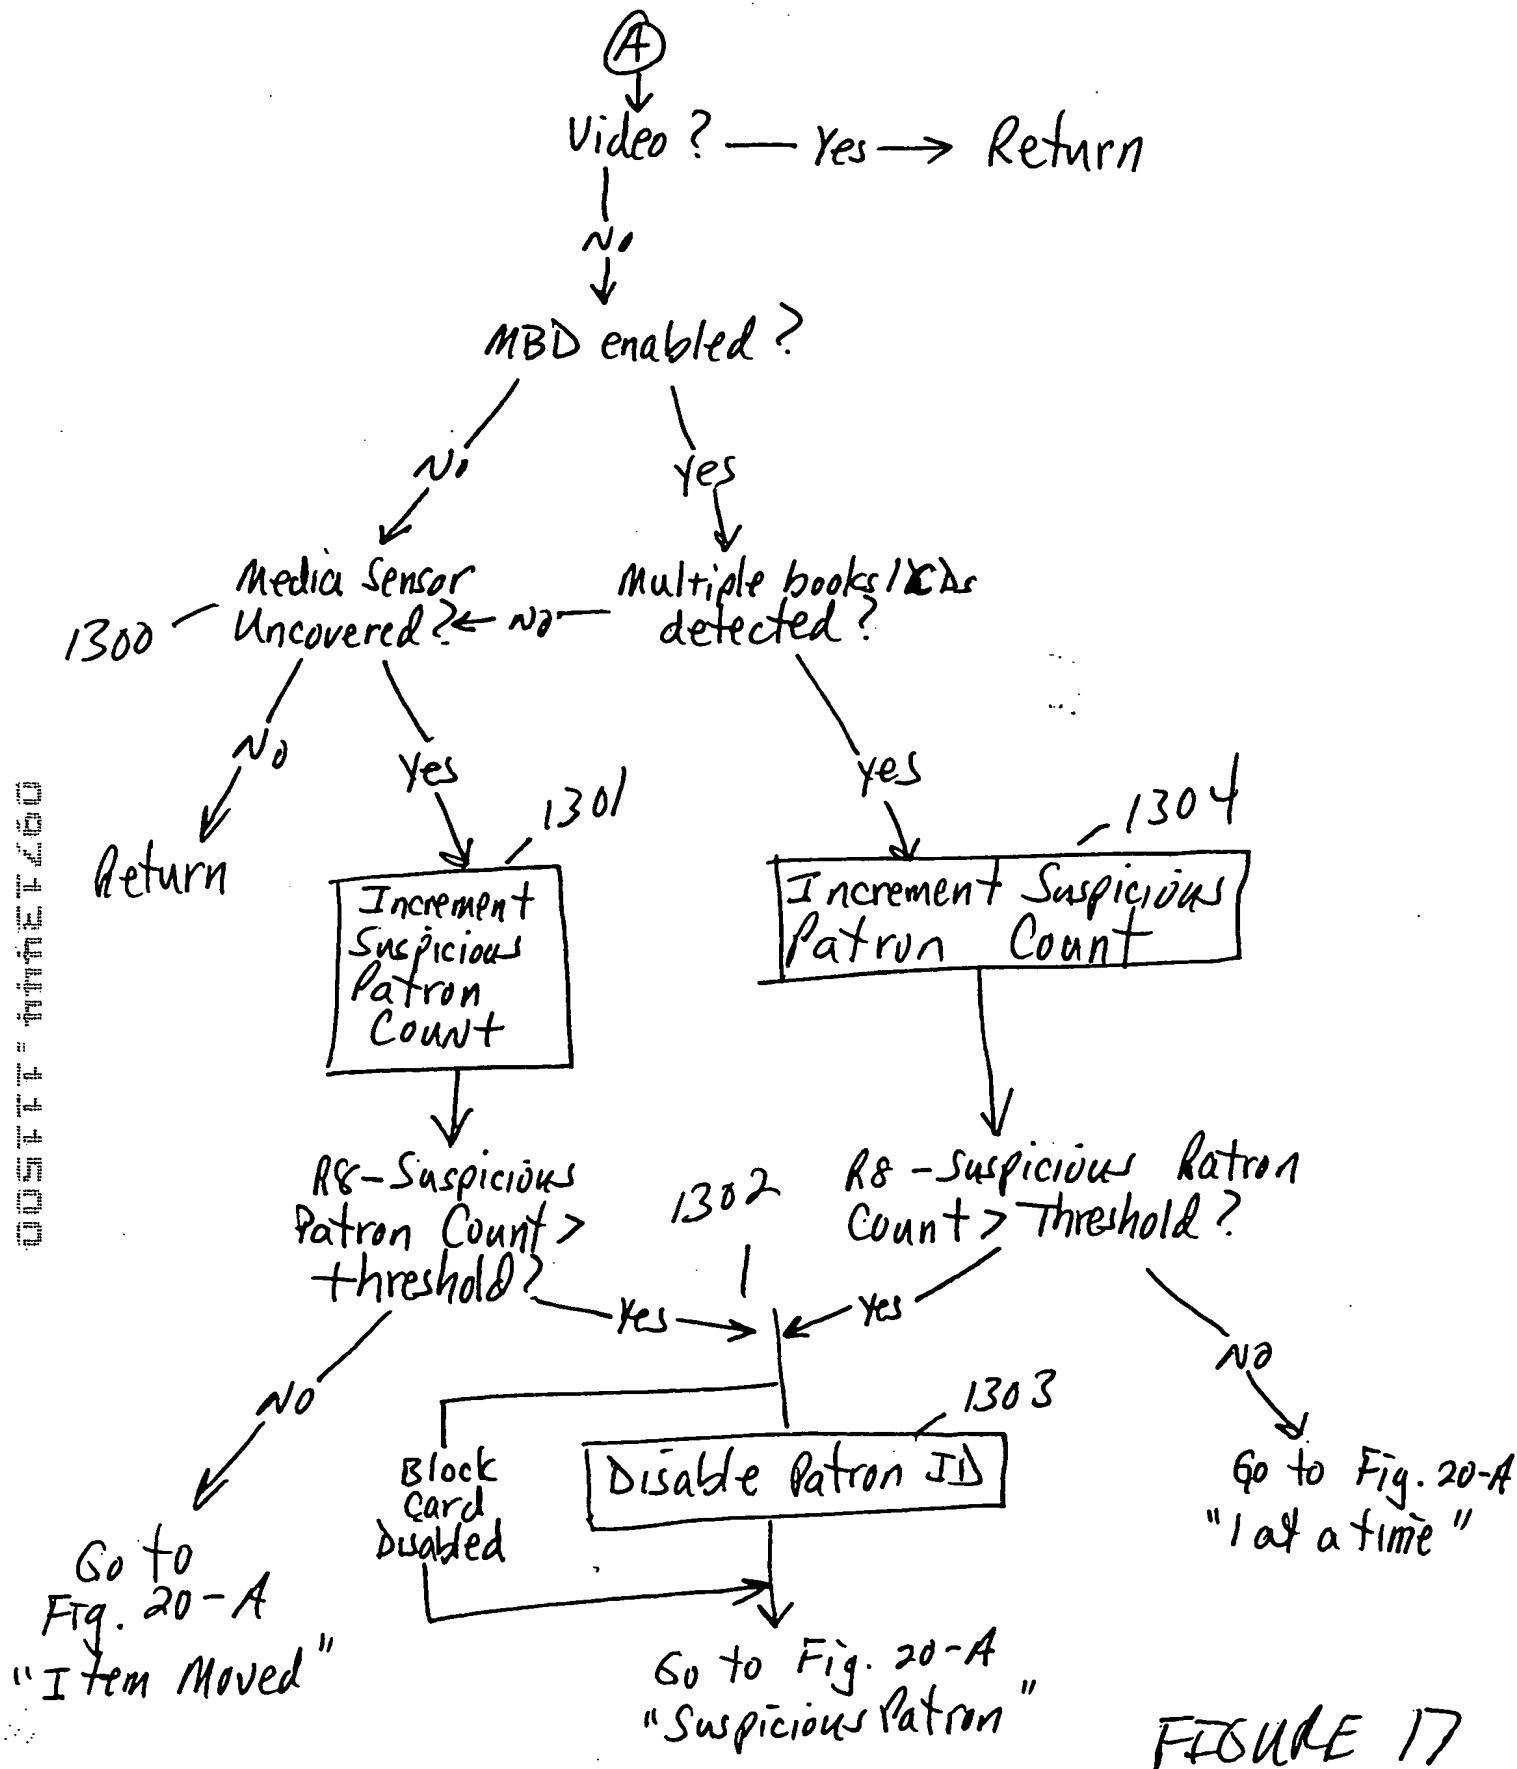 A
Video? Yes Return
No
MBD enabled?
No
Yes
Media Sensor
Uncovered?
No
Multiple books/CDs
detected?
1300
No
Yes
Yes
1301
1304
Return
Increment
Suspicious
Patron
Count
Increment Suspicious
Patron Count
R8-Suspicious
Patron Count >
threshold?
1302
R8-Suspicious Patron
Count > Threshold?
Yes
Yes
No
No
1303
Block
Card
Disabled
Disable Patron ID
Go to Fig. 20-A
"1 at a time"
Go to
Fig. 20-A
"Item Moved"
Go to Fig. 20-A
"Suspicious Patron"
FIGURE 17